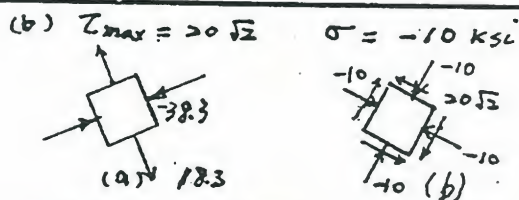 (b) τmax = 20 √2 σ = -10 ksi
-38.3
(a) 18.3
-10
-10
20√2
-10
-10 (b)